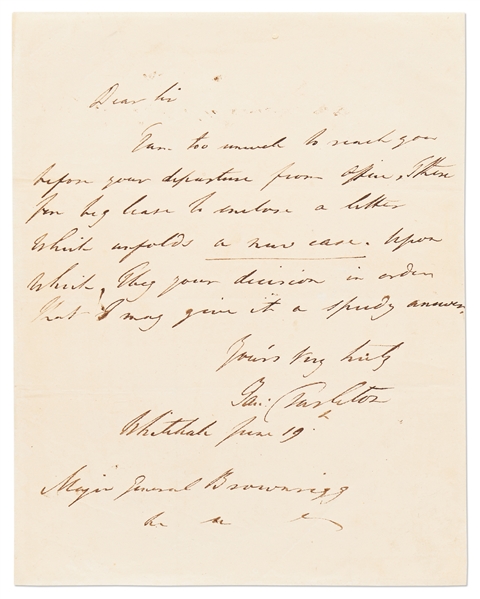 Dear Sir
I am too unwell to reach you
before your departure from office, I there
fore beg leave to enclose a letter
which unfolds a new case. Upon
which, I beg your decision in order
that I may give it a speedy answer.
Your's very truly
Ban: Tarleton
Whitehall June 19th
Major General Brownrigg